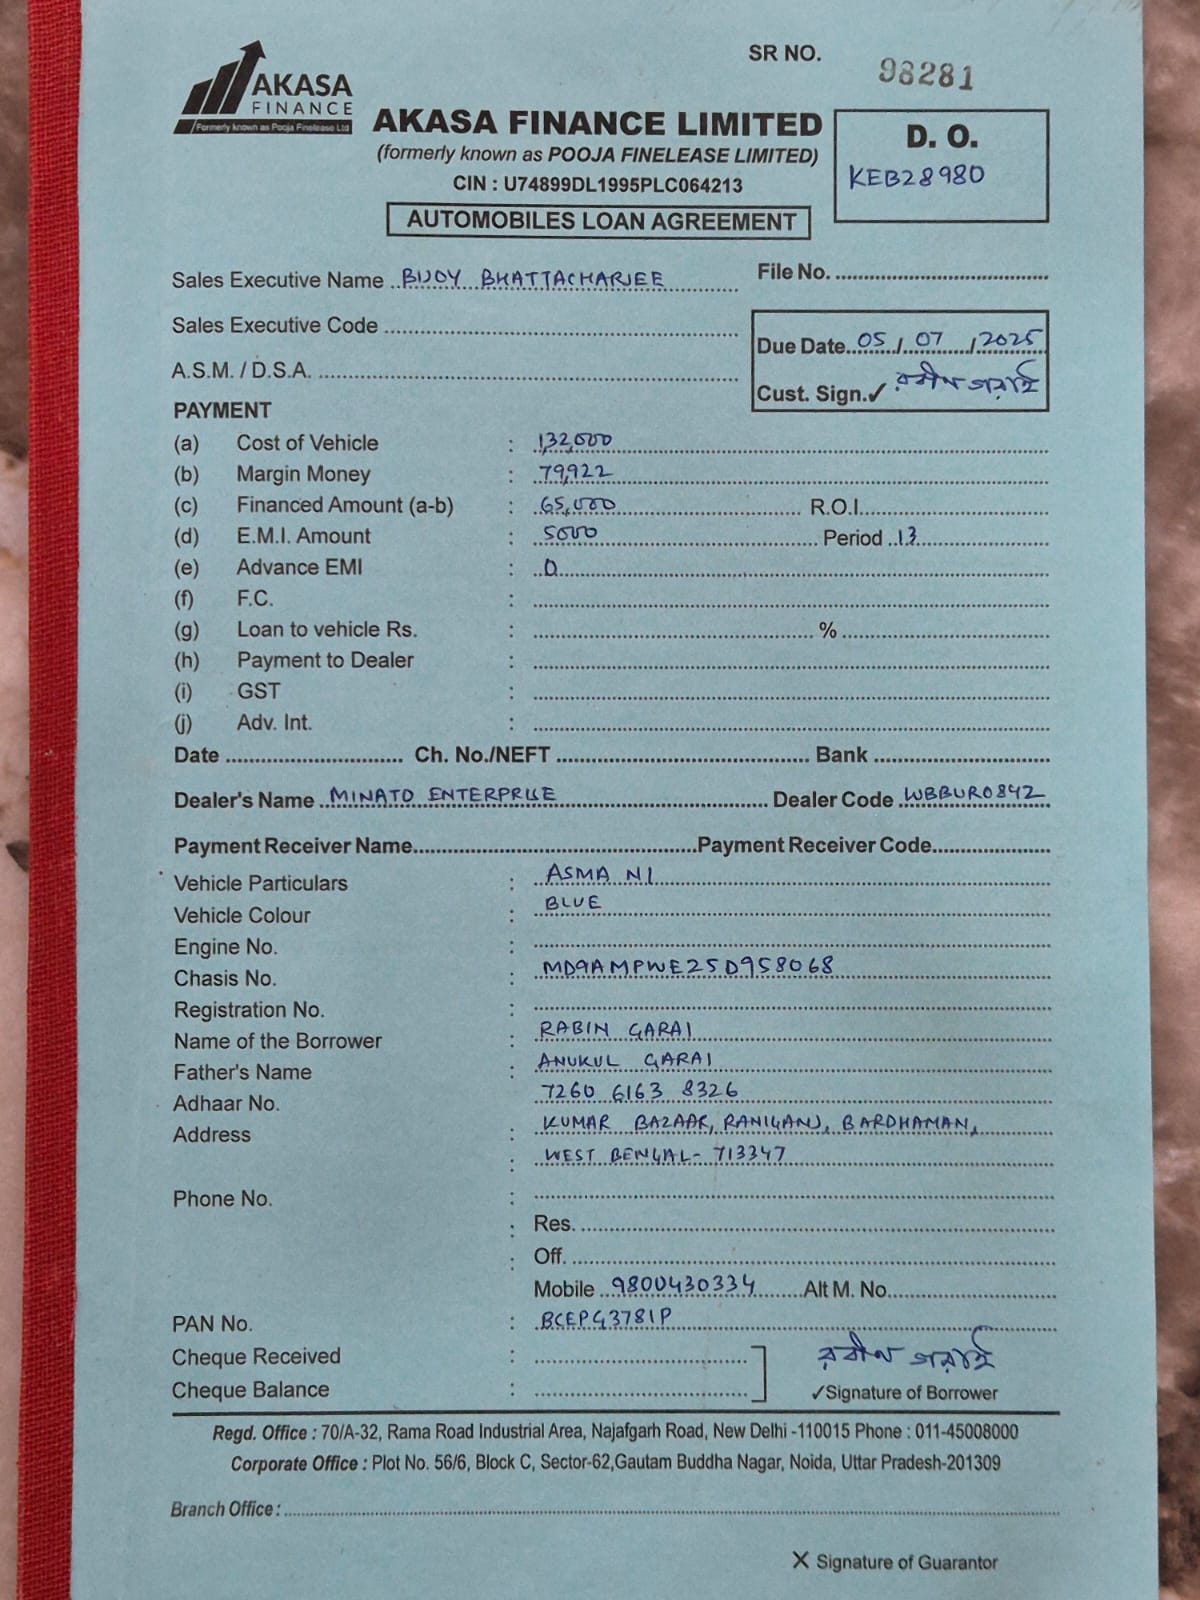 SR NO. 98281
AKASA
FINANCE
Formerly known as Pooja Finelease Ltd
AKASA FINANCE LIMITED
(formerly known as POOJA FINELEASE LIMITED)
CIN : U74899DL1995PLC064213
AUTOMOBILES LOAN AGREEMENT
D. O.
KEB28980
Sales Executive Name BIJOY BHATTACHARJEE
File No.
Sales Executive Code
A.S.M. / D.S.A.
Due Date 05/07/2025
Cust. Sign.✓ রবীন গরাই
PAYMENT
(a) Cost of Vehicle : 1,32,000
(b) Margin Money : 79,922
(c) Financed Amount (a-b) : 65,000 R.O.I.
(d) E.M.I. Amount : 5000 Period 13
(e) Advance EMI : 0
(f) F.C. :
(g) Loan to vehicle Rs. : %
(h) Payment to Dealer :
(i) GST :
(j) Adv. Int. :
Date Ch. No./NEFT Bank
Dealer's Name MINATO ENTERPRISE Dealer Code WBBUR0842
Payment Receiver Name Payment Receiver Code
Vehicle Particulars : ASMA N1
Vehicle Colour : BLUE
Engine No. :
Chasis No. : MD9AMPWE25D958068
Registration No. :
Name of the Borrower : RABIN GARAI
Father's Name : ANUKUL GARAI
Adhaar No. 7260 6163 8326
Address : KUMAR BAZAAR, RANIGANJ, BARDHAMAN,
: WEST BENGAL- 713347
Phone No. :
: Res.
: Off.
Mobile 9800430334 Alt M. No.
PAN No. : BCEPG3781P
Cheque Received :
Cheque Balance :
রবীন গরাই
✓Signature of Borrower
Regd. Office : 70/A-32, Rama Road Industrial Area, Najafgarh Road, New Delhi -110015 Phone : 011-45008000
Corporate Office : Plot No. 56/6, Block C, Sector-62,Gautam Buddha Nagar, Noida, Uttar Pradesh-201309
Branch Office :
X Signature of Guarantor